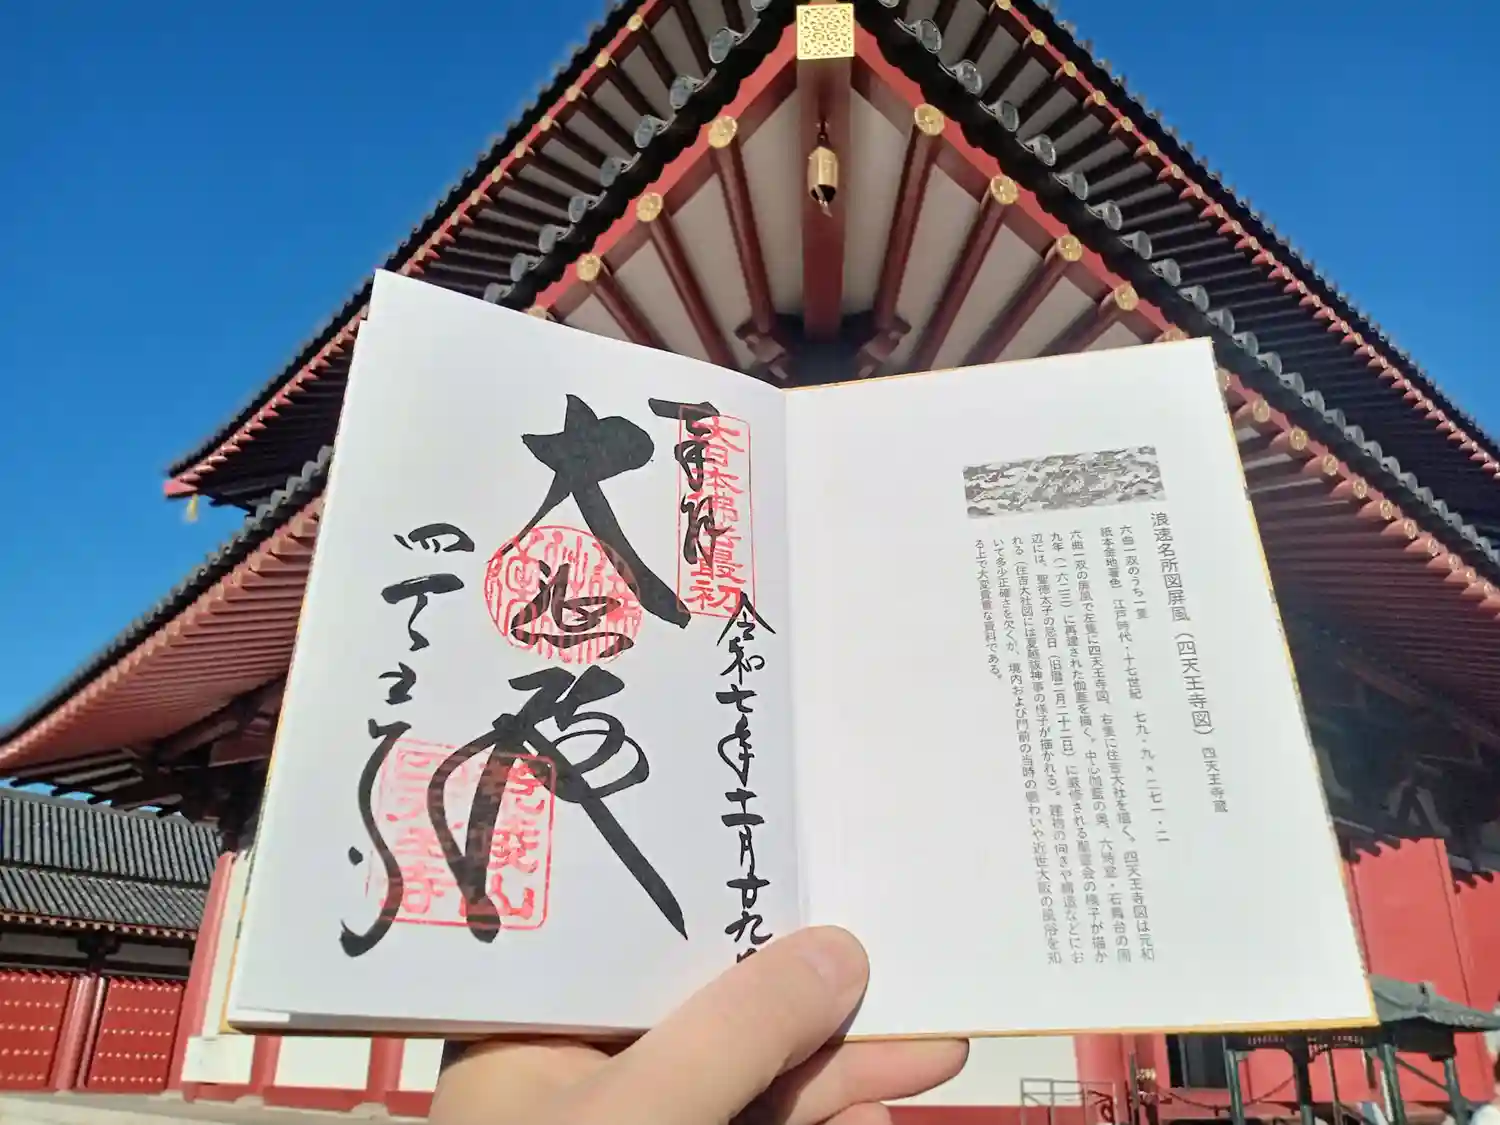 浪速名所図屏風（四天王寺図） 四天王寺蔵
六曲一双のうち一隻
紙本金地著色 江戸時代・十七世紀 七九・九×二七一・二
六曲一双の屏風で左隻に四天王寺図、右隻に住吉大社を描く。四天王寺図は元和
九年（一六二三）に再建された伽藍を描く。中心伽藍の奥、六時堂・石舞台の周
辺には、聖徳太子の忌日（旧暦二月二十二日）に厳修される聖霊会の様子が描か
れる（住吉大社図には夏越祓神事の様子が描かれる）。建物の向きや構造などにお
いて多少正確さを欠くが、境内および門前の当時の賑わいや近世大阪の風俗を知
る上で大変貴重な資料である。
令和七年十一月廿九日
奉拝
大日本佛法最初
大悲殿
四天王寺
荒陵山
四天王寺